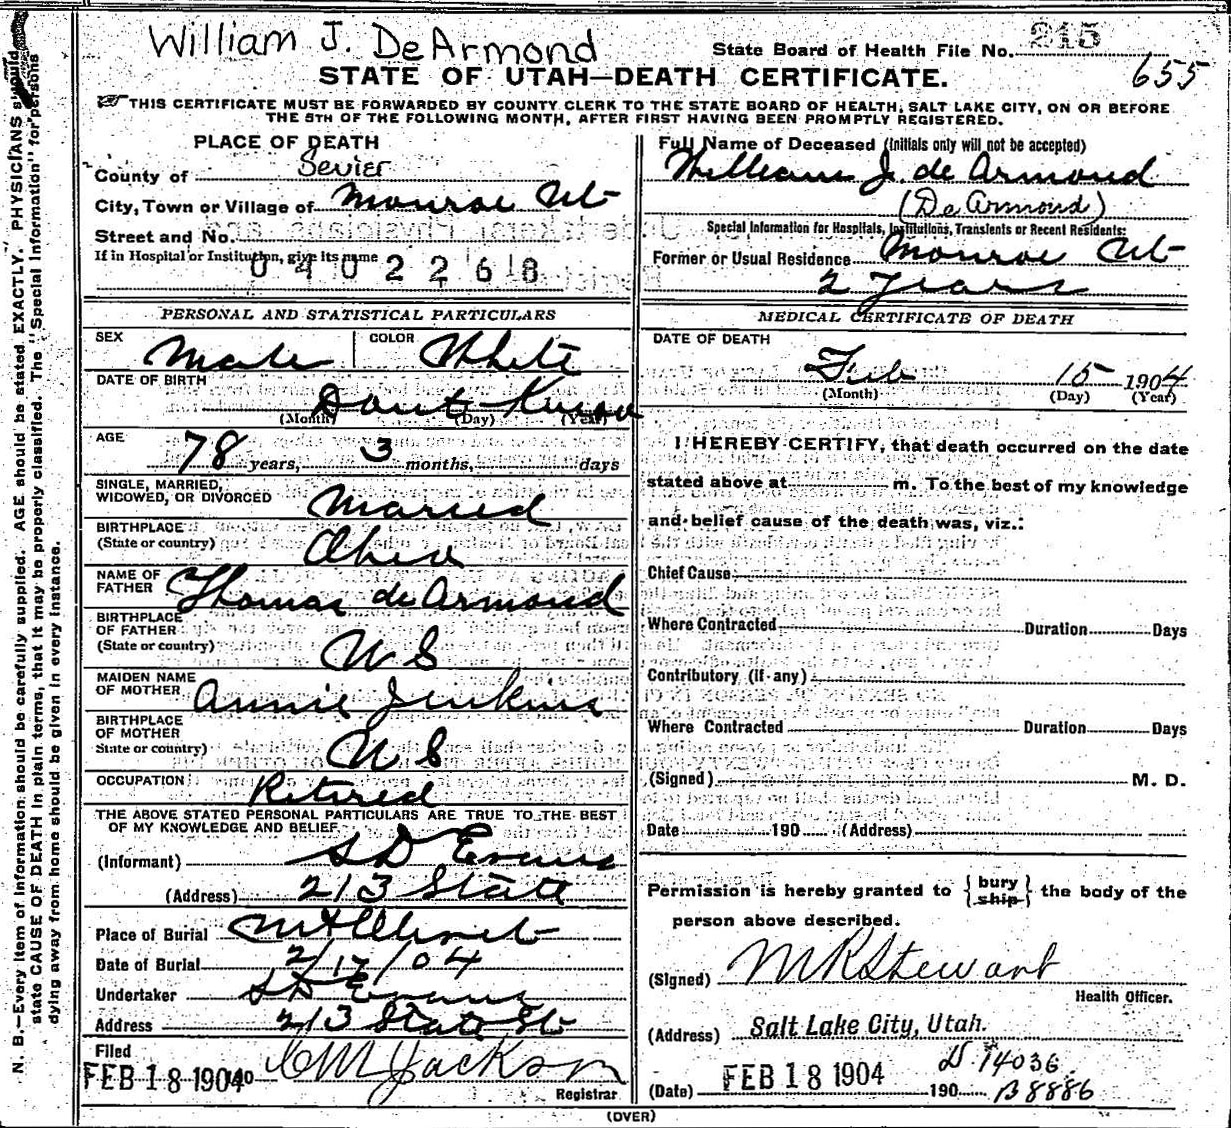 William J. DeArmond
State Board of Health File No. 215
655
STATE OF UTAH—DEATH CERTIFICATE.
THIS CERTIFICATE MUST BE FORWARDED BY COUNTY CLERK TO THE STATE BOARD OF HEALTH, SALT LAKE CITY, ON OR BEFORE
THE 5TH OF THE FOLLOWING MONTH, AFTER FIRST HAVING BEEN PROMPTLY REGISTERED.
PLACE OF DEATH
County of Sevier
City, Town or Village of Monroe Ut
Street and No.
If in Hospital or Institution, give its name
0402268
Full Name of Deceased (Initials only will not be accepted)
William J. de Armond
(De Armond)
Special Information for Hospitals, Institutions, Transients or Recent Residents:
Former or Usual Residence Monroe Ut
2 Years
PERSONAL AND STATISTICAL PARTICULARS
SEX Male COLOR White
DATE OF BIRTH
Dont Know
(Month) (Day) (Year)
AGE
78 years, 3 months, days
SINGLE, MARRIED,
WIDOWED, OR DIVORCED Married
BIRTHPLACE
(State or country) Ohio
NAME OF
FATHER Thomas de Armond
BIRTHPLACE
OF FATHER
(State or country) U S
MAIDEN NAME
OF MOTHER Annie Jenkins
BIRTHPLACE
OF MOTHER
State or country) U S
OCCUPATION Retired
THE ABOVE STATED PERSONAL PARTICULARS ARE TRUE TO THE BEST
OF MY KNOWLEDGE AND BELIEF
(Informant) S D Evans
(Address) 213 State
Place of Burial Mt Olivet
Date of Burial 2/17/04
Undertaker S D Evans
Address 213 State St
Filed
FEB 18 1904 190 C M Jackson
Registrar
MEDICAL CERTIFICATE OF DEATH
DATE OF DEATH
Feb 15 1904
(Month) (Day) (Year)
I HEREBY CERTIFY, that death occurred on the date
stated above at m. To the best of my knowledge
and belief cause of the death was, viz.:
Chief Cause
Where Contracted Duration Days
Contributory (if any)
Where Contracted Duration Days
(Signed) M. D.
Date 190 (Address)
Permission is hereby granted to {bury ship} the body of the
person above described.
(Signed) M R Stewart
Health Officer.
(Address) Salt Lake City, Utah.
D 14036
(Date) FEB 18 1904 190 B 8886
(OVER)
N. B.—Every item of information should be carefully supplied. AGE should be stated EXACTLY. PHYSICIANS should
state CAUSE OF DEATH in plain terms, that it may be properly classified. The "Special Information" for persons
dying away from home should be given in every instance.